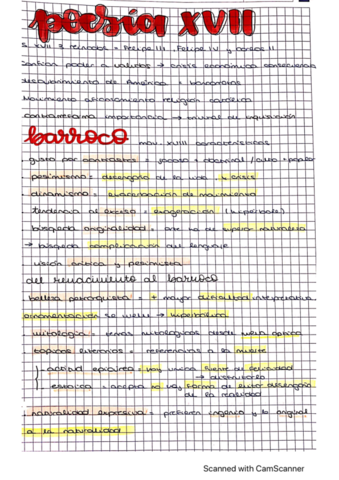 poesía XVII
S. XVII 3 reinados = Felipe III, Felipe IV y Carlos II
confían poder a validos → crisis económica consecuencia
descubrimiento de América + bancarrotas
Movimiento aficionamiento religión católica
contrarreforma importancia → tribunal de inquisición
barroco mov. XVIII características
. gusto por contrastes = jocoso + doctrinal / culto + popular
. pesimismo = desengaño de la vida + crisis
. dinamismo = exageración de movimiento
. tendencia al exceso = exageración (hipérbole)
. búsqueda originalidad = arte ha de superar naturaleza
→ búsqueda complicación del lenguaje
. visión crítica y pesimista
del renacimiento al barroco
. belleza petrarquista = + mayor dificultad interpretativa
ornamentación se vuelve → hiperbólica
. mitología = temas mitológicos desde
. tópicos literarios = referencias a la muerte
- actitud epicúrea = hay única fuente de felicidad
→ disfrutarla
- estoica = acepta no hay forma de evitar desengaño
de la realidad
. naturalidad expresiva = prefieren ingenio y lo original
a la naturalidad
Scanned with CamScanner